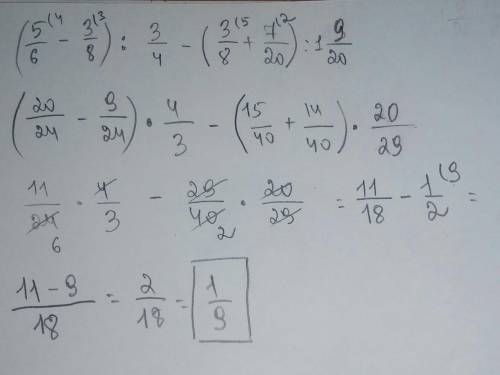 (5/6⁽⁴ - 3/8⁽³) : 3/4 - (3/8⁽⁵ + 7/20⁽²) : 1 9/20
(20/24 - 9/24) · 4/3 - (15/40 + 14/40) · 20/29
11/24 6 · 4/3 - 29/40 2 · 20/29 = 11/18 - 1/2⁽⁹ =
11-9/18 = 2/18 = 1/9